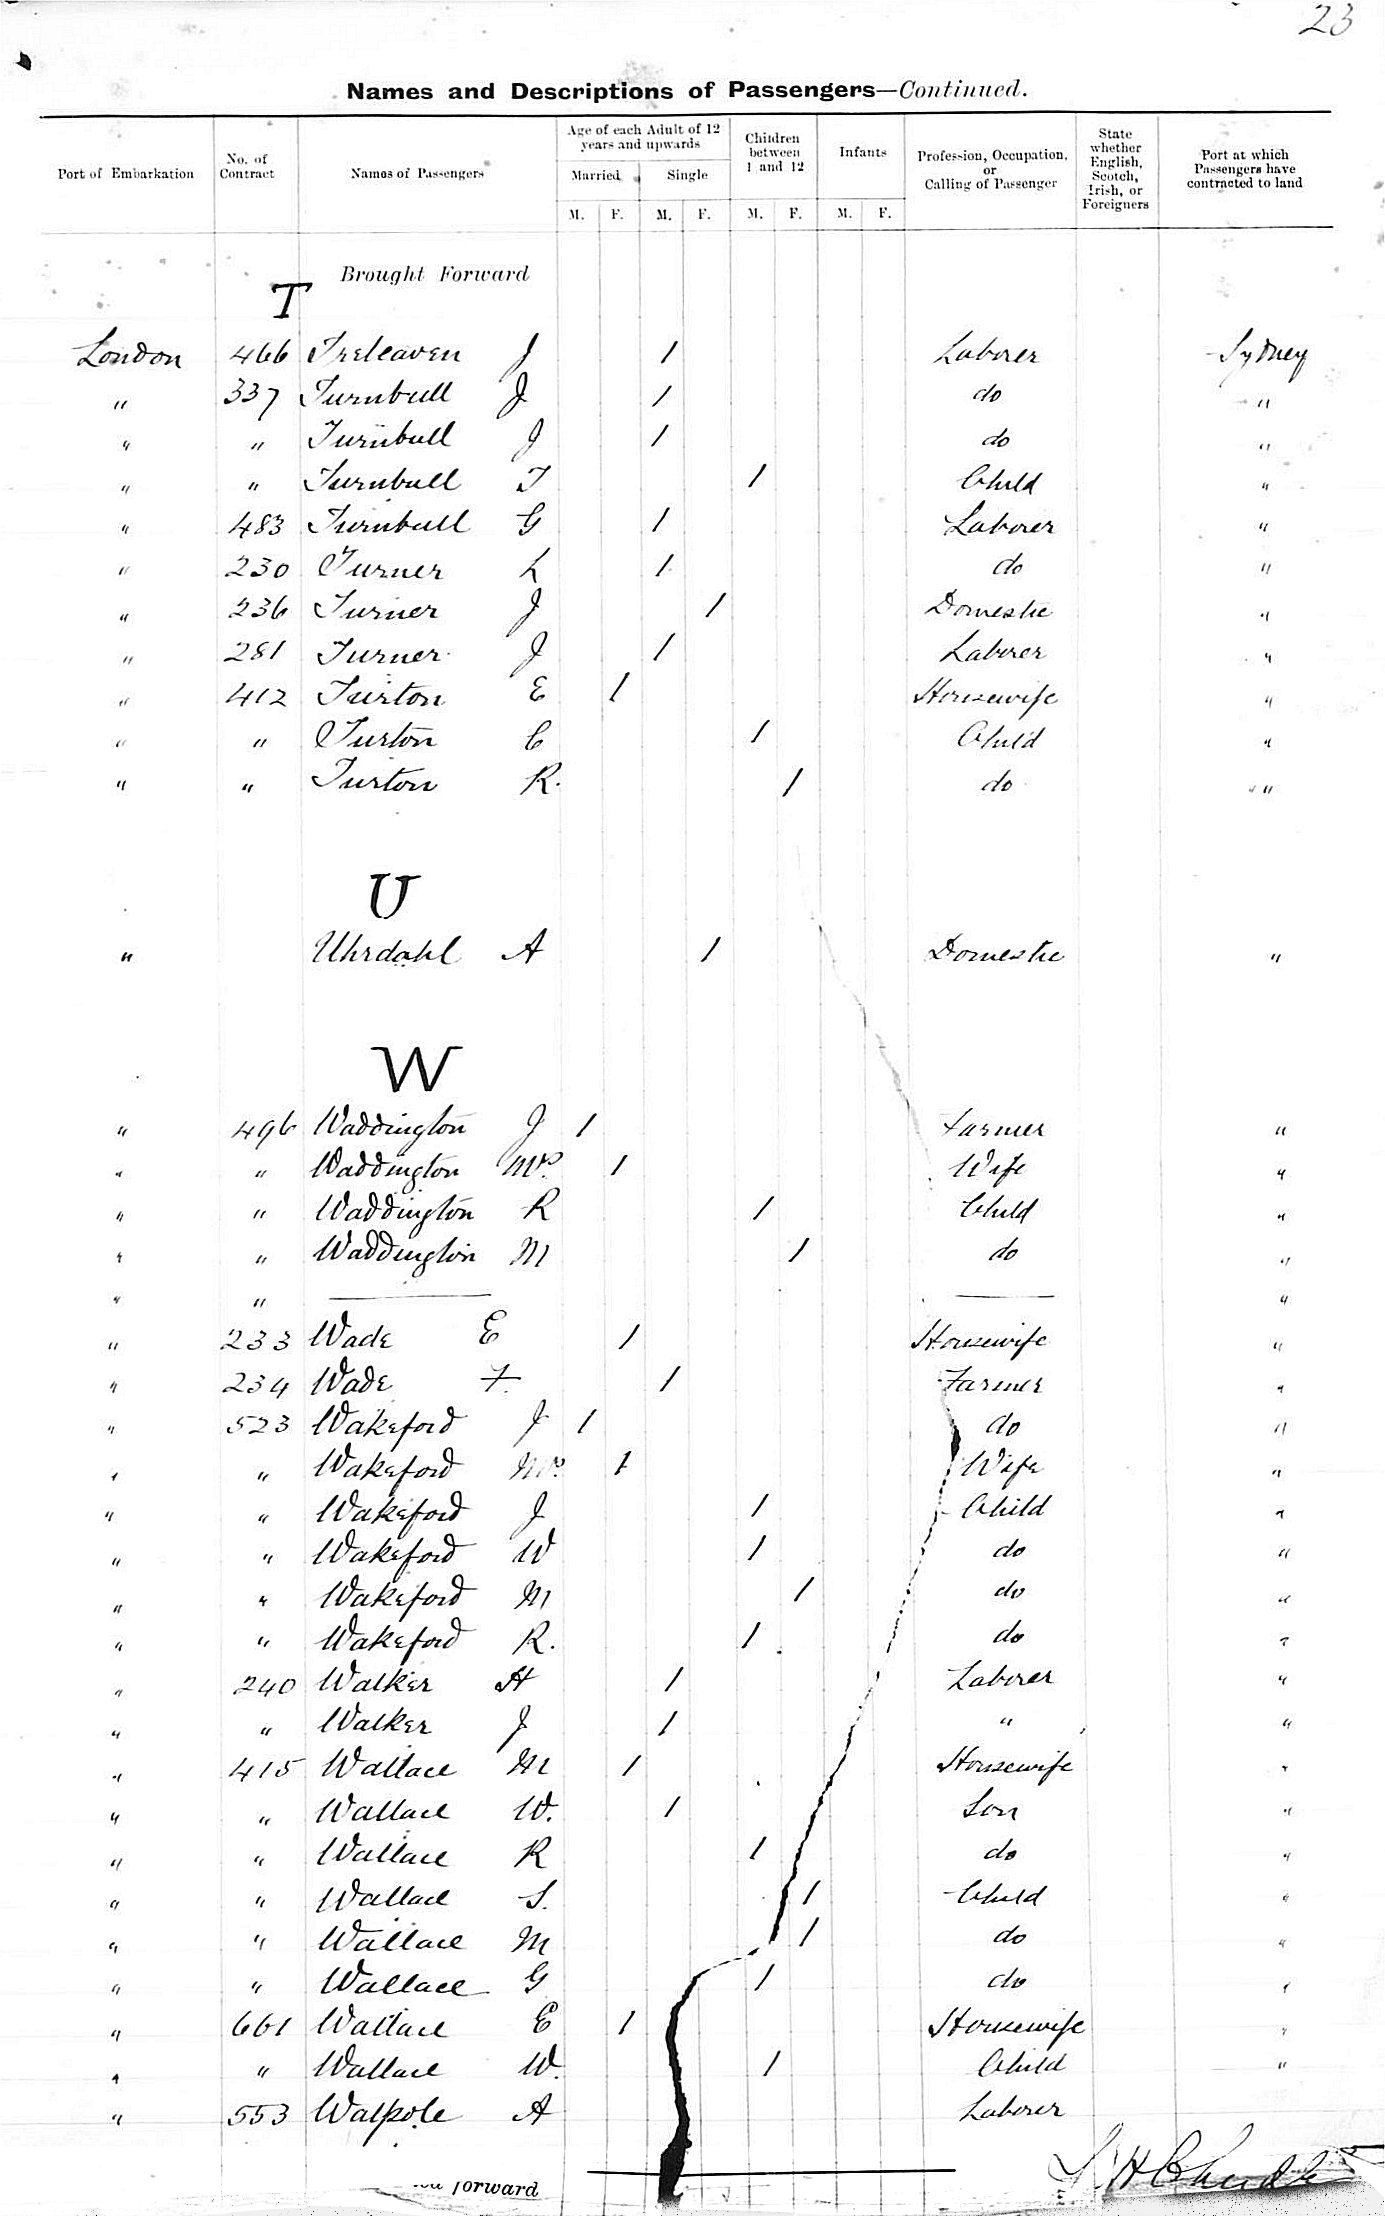 23
Names and Descriptions of Passengers—Continued.
Port of Embarkation | No. of Contract | Names of Passengers | Age of each Adult of 12 years and upwards | Married M. F. | Single M. F. | Children between 1 and 12 M. F. | Infants M. F. | Profession, Occupation, or Calling of Passenger | State whether English, Scotch, Irish, or Foreigners | Port at which Passengers have contracted to land
Brought Forward
T
London 466 Treleaven J 1 Laborer Sydney
" 337 Turnbull J 1 do "
" " Turnbull J 1 do "
" " Turnbull T 1 Child "
" 483 Turnbull G 1 Laborer "
" 230 Turner L 1 do "
" 236 Turner J 1 Domestic "
" 281 Turner J 1 Laborer "
" 412 Turton E 1 Housewife "
" " Turton C 1 Child "
" " Turton R. 1 do "
U
" Uhrdahl A 1 Domestic "
W
" 496 Waddington J 1 Farmer "
" " Waddington Mrs. 1 Wife "
" " Waddington R 1 Child "
" " Waddington M 1 do "
" " — — "
" 233 Wade E 1 Housewife "
" 234 Wade F. 1 Farmer "
" 523 Wakeford J 1 do "
" " Wakeford Mrs. 1 Wife "
" " Wakeford J 1 Child "
" " Wakeford W 1 do "
" " Wakeford M 1 do "
" " Wakeford R. 1 do "
" 240 Walker H 1 Laborer "
" " Walker J 1 " "
" 415 Wallace M 1 Housewife "
" " Wallace W. 1 Son "
" " Wallace R 1 do "
" " Wallace S. 1 Child "
" " Wallace M 1 do "
" " Wallace G 1 do "
" 661 Wallace E 1 Housewife "
" " Wallace W. 1 Child "
" 553 Walpole A Laborer
forward